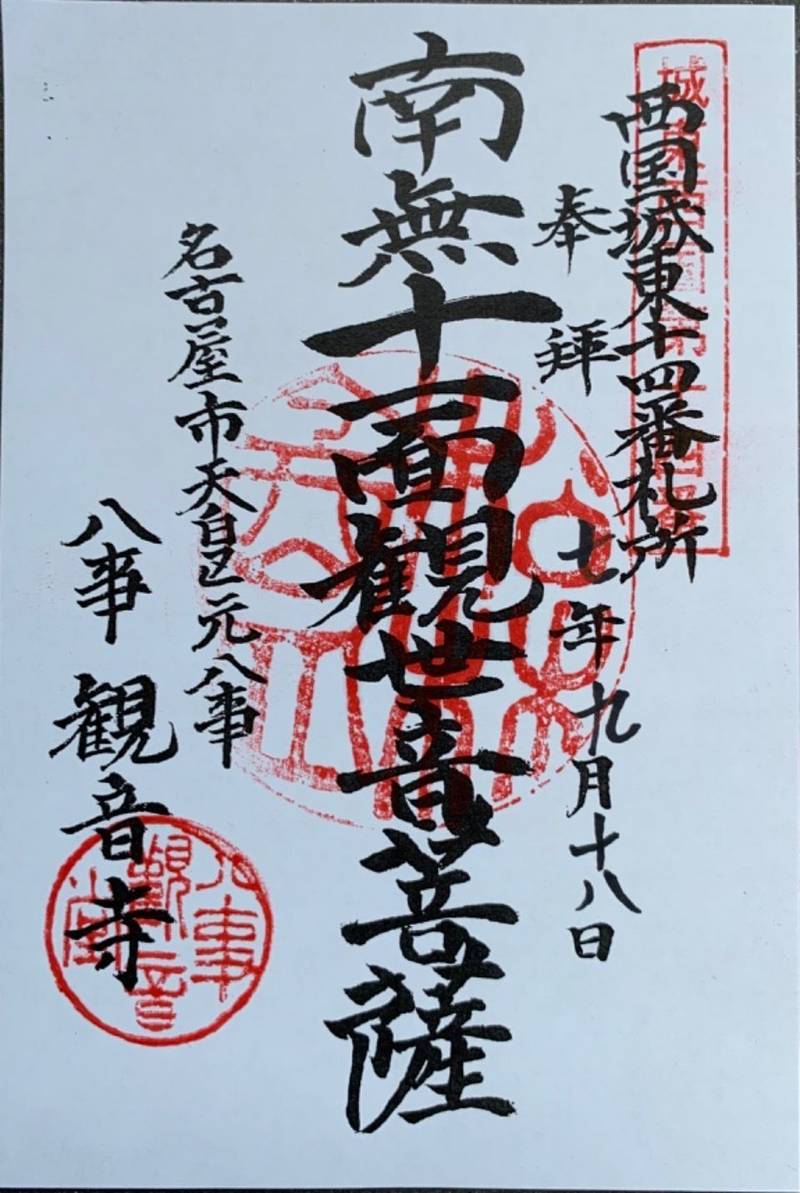 西国城東十四番札所
奉拝
七年九月十八日
南無十一面観世音菩薩
名古屋市天白区元八事
八事 観音寺
八事
観音